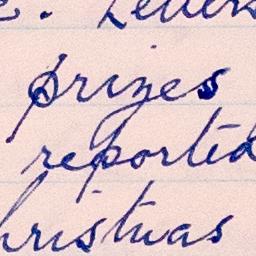 . Letters
prizes
reported
hristmas